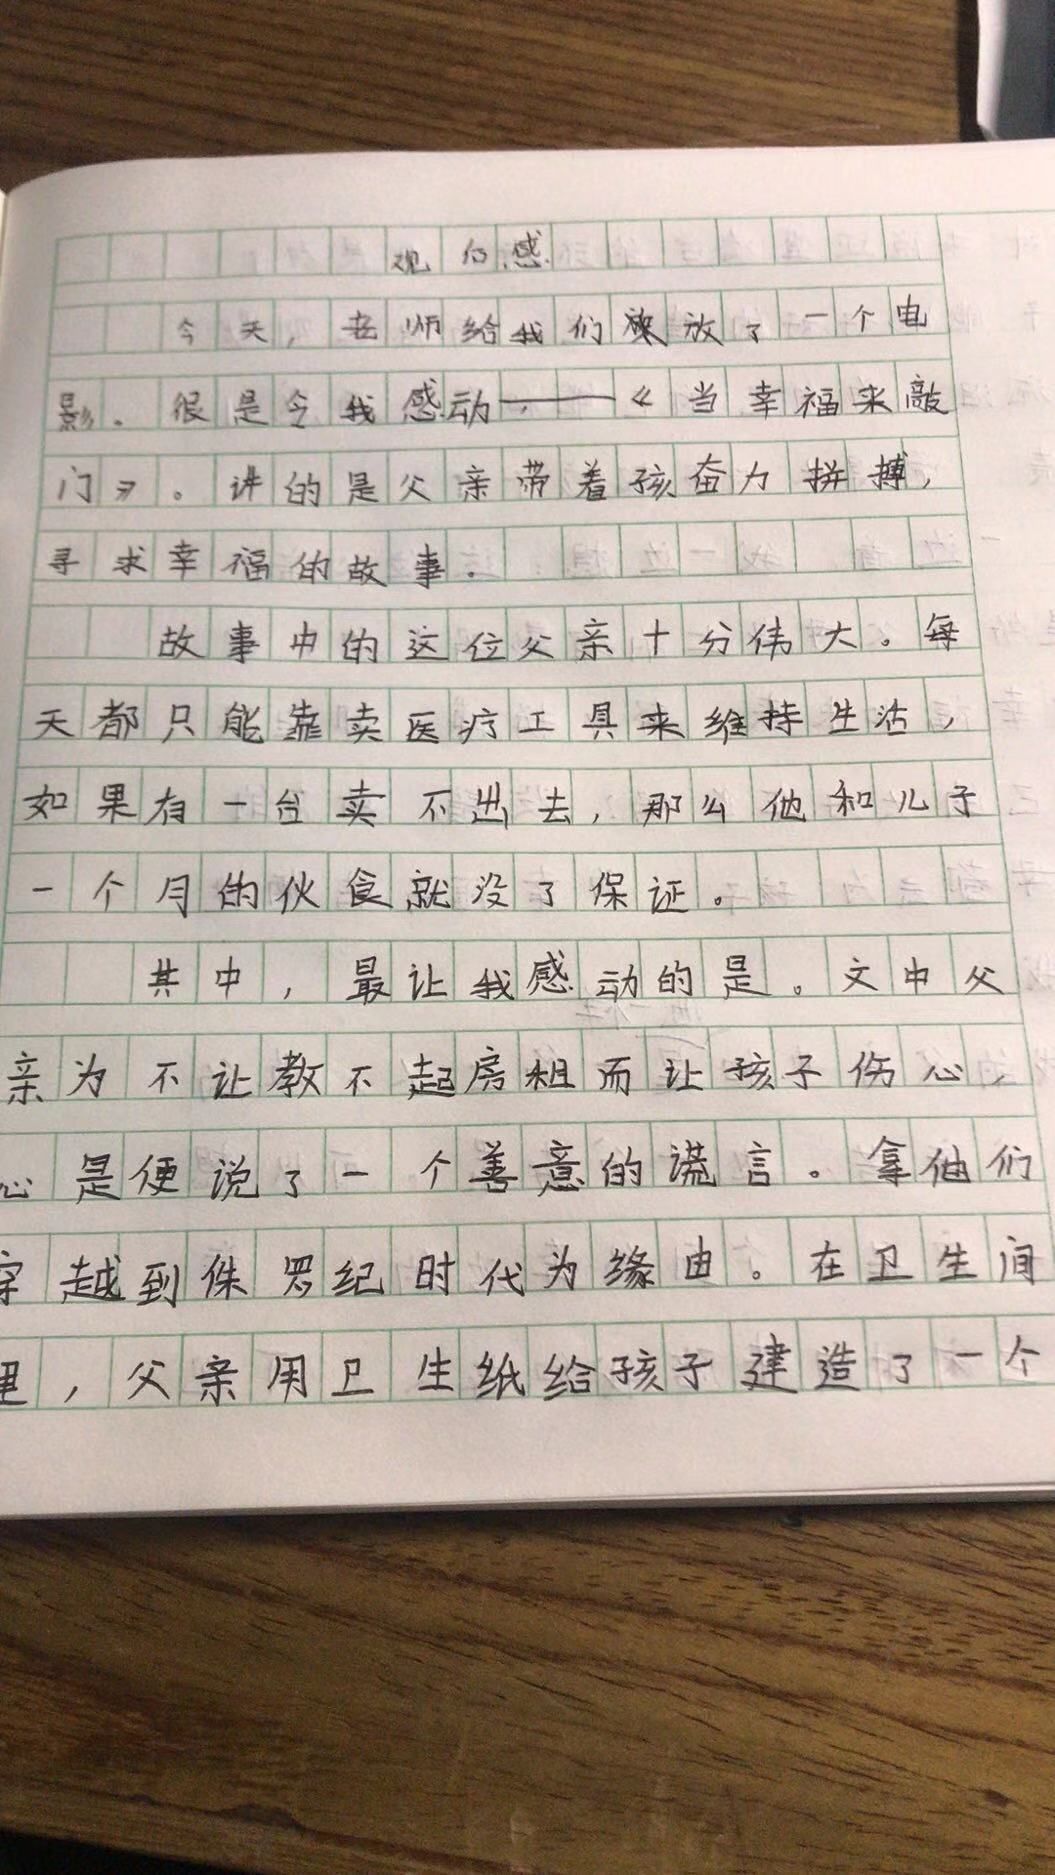 观的感
今天，老师给我们放了一个电
影。很是令我感动——《当幸福来敲
门》。讲的是父亲带着孩奋力拼搏，
寻求幸福的故事。
故事中的这位父亲十分伟大。每
天都只能靠卖医疗工具来维持生活，
如果有一台卖不出去，那么他和儿子
一个月的伙食就没了保证。
其中，最让我感动的是。文中父
亲为不让教不起房租而让孩子伤心，
心是便说了一个善意的谎言。拿他们
穿越到侏罗纪时代为缘由。在卫生间
里，父亲用卫生纸给孩子建造了一个